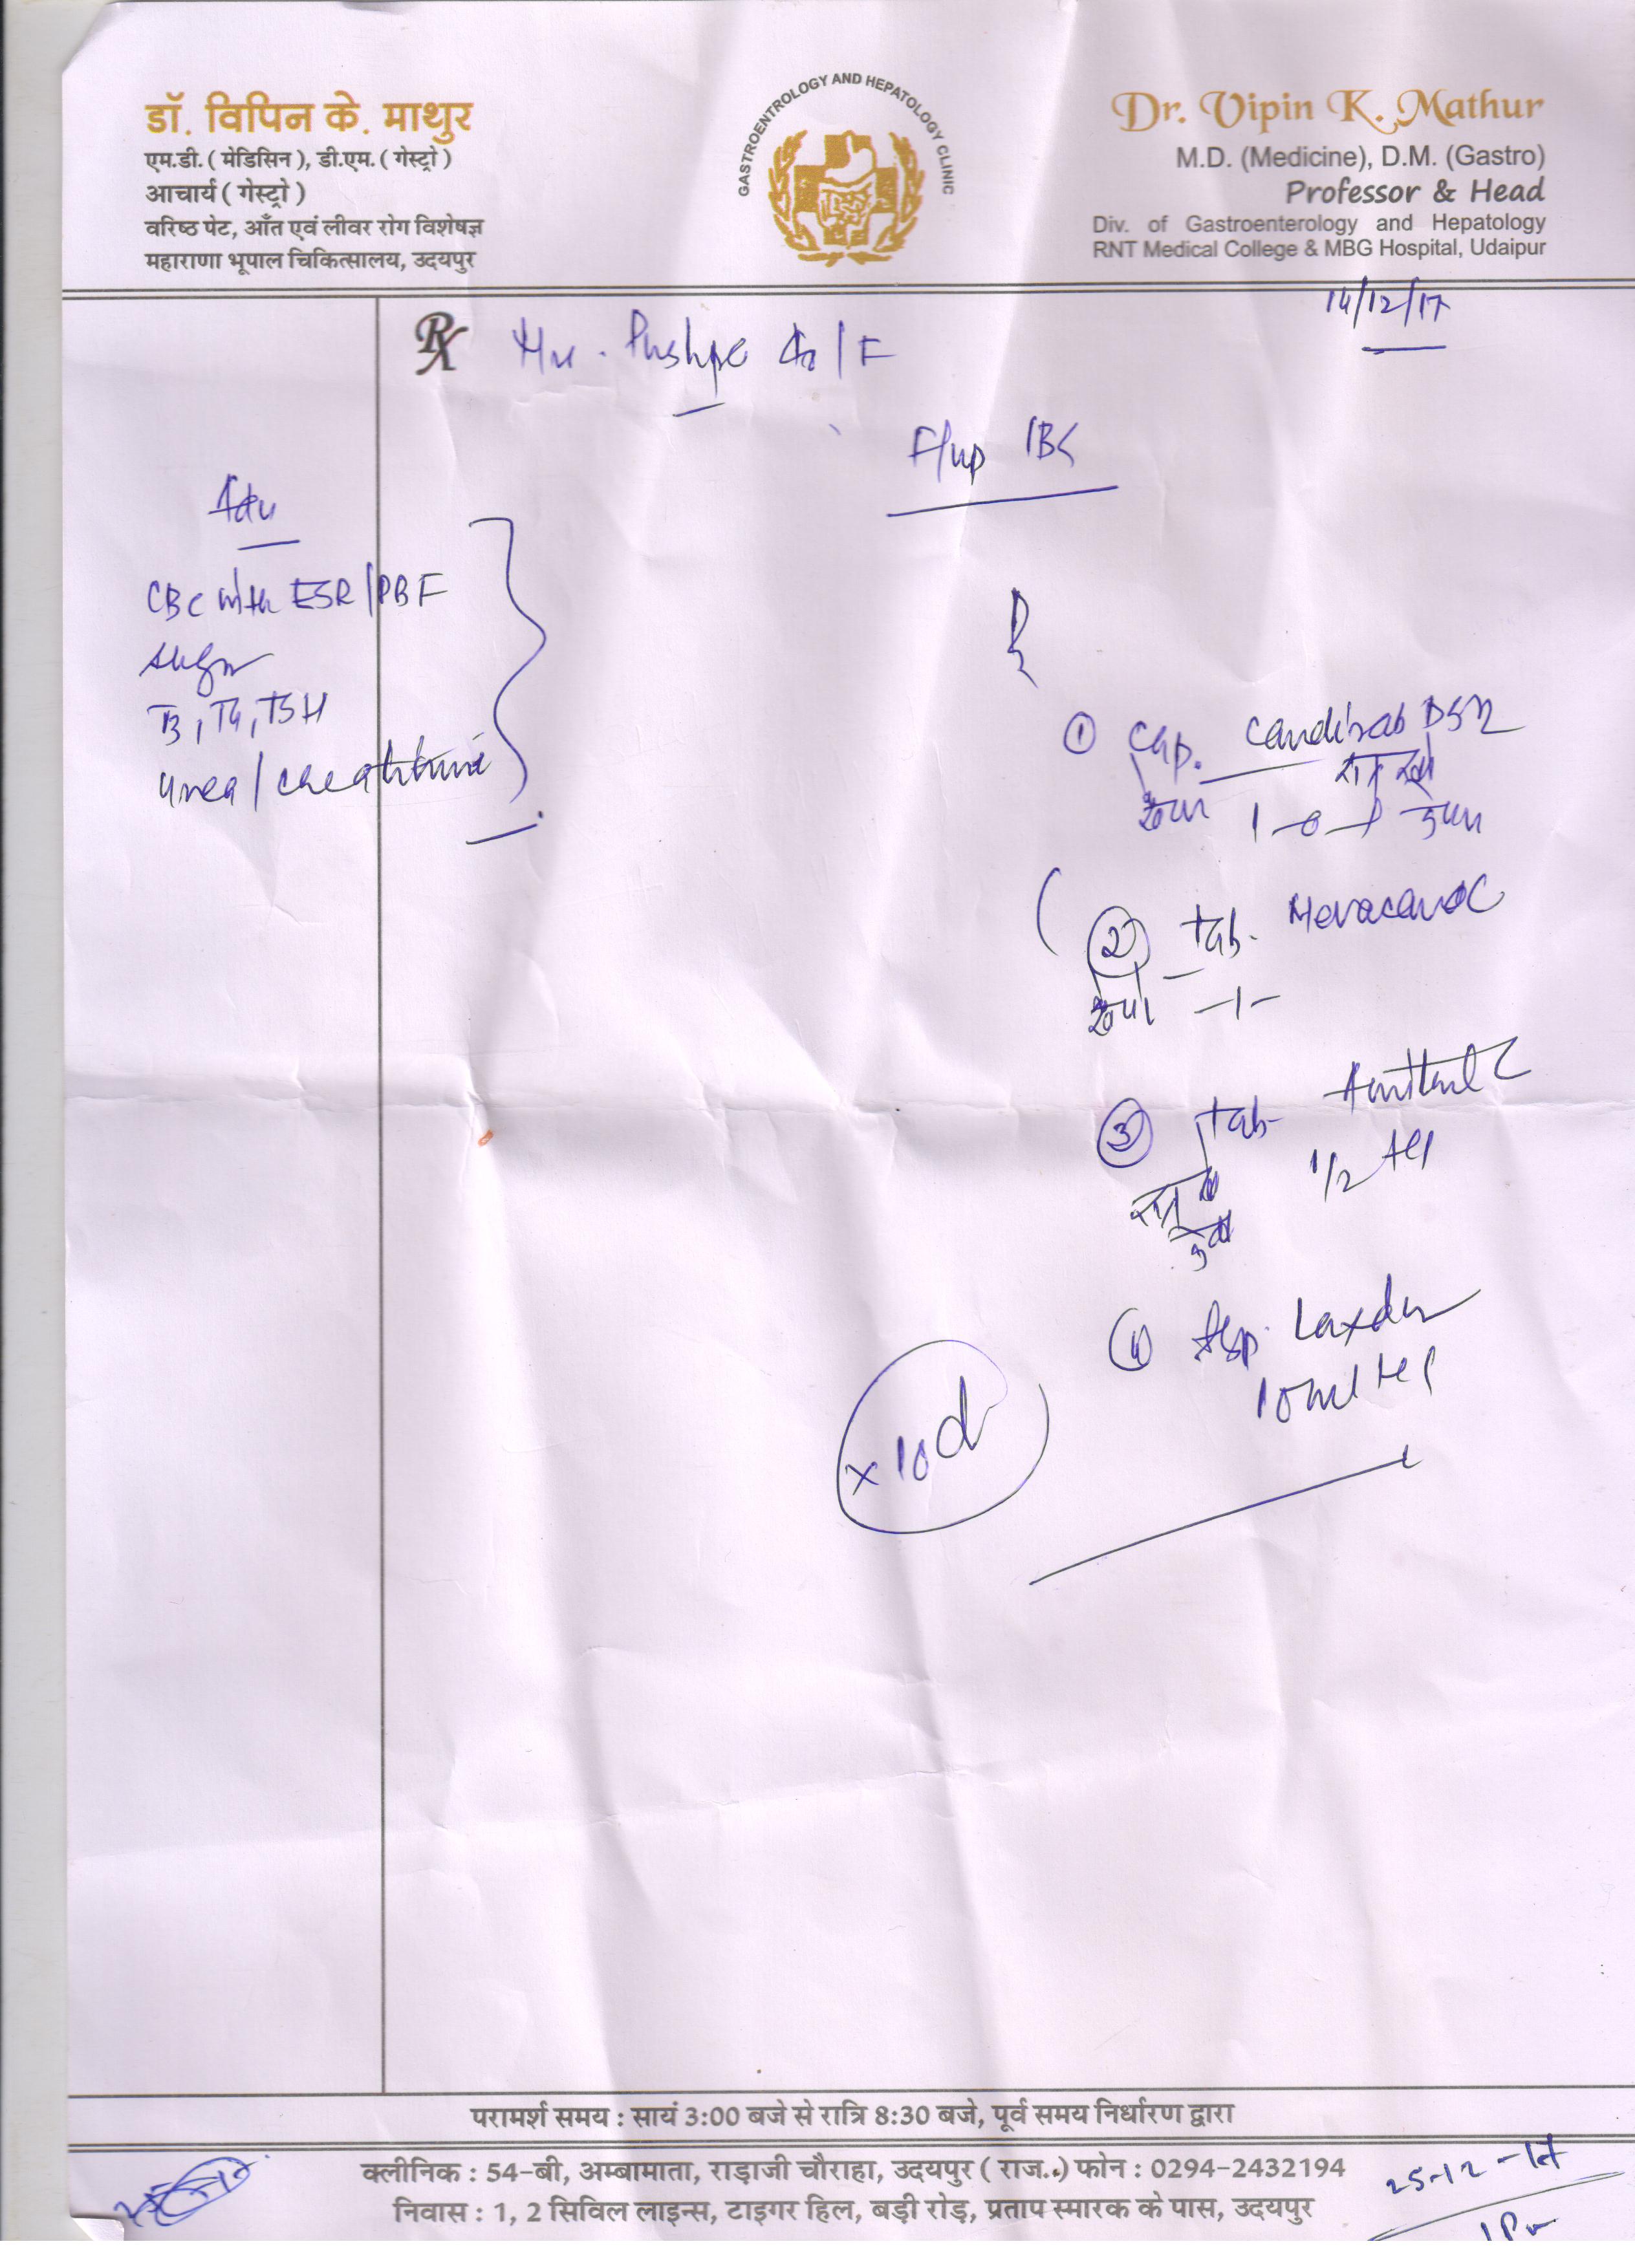 डॉ. विपिन के. माथुर
एम.डी. ( मेडिसिन ), डी.एम. ( गेस्ट्रो )
आचार्य ( गेस्ट्रो )
वरिष्ठ पेट, आँत एवं लीवर रोग विशेषज्ञ
महाराणा भूपाल चिकित्सालय, उदयपुर
GASTROENTROLOGY AND HEPATOLOGY CLINIC
Dr. Vipin K. Mathur
M.D. (Medicine), D.M. (Gastro)
Professor & Head
Div. of Gastroenterology and Hepatology
RNT Medical College & MBG Hospital, Udaipur
14/12/17
Rx
Pushpa
/ F
F/up IBS
Adv
CBC with ESR / PBF
Sugar
T3, T4, TSH
Urea / Creatinine
① Cap.
DSR
1-0-1
② Tab.
-1-
③ Tab
1/2
④ Syp.
10ml
x 10d
परामर्श समय : सायं 3:00 बजे से रात्रि 8:30 बजे, पूर्व समय निर्धारण द्वारा
क्लीनिक : 54-बी, अम्बामाता, राड़ाजी चौराहा, उदयपुर ( राज..) फोन : 0294-2432194
निवास : 1, 2 सिविल लाइन्स, टाइगर हिल, बड़ी रोड़, प्रताप स्मारक के पास, उदयपुर
25-12-17